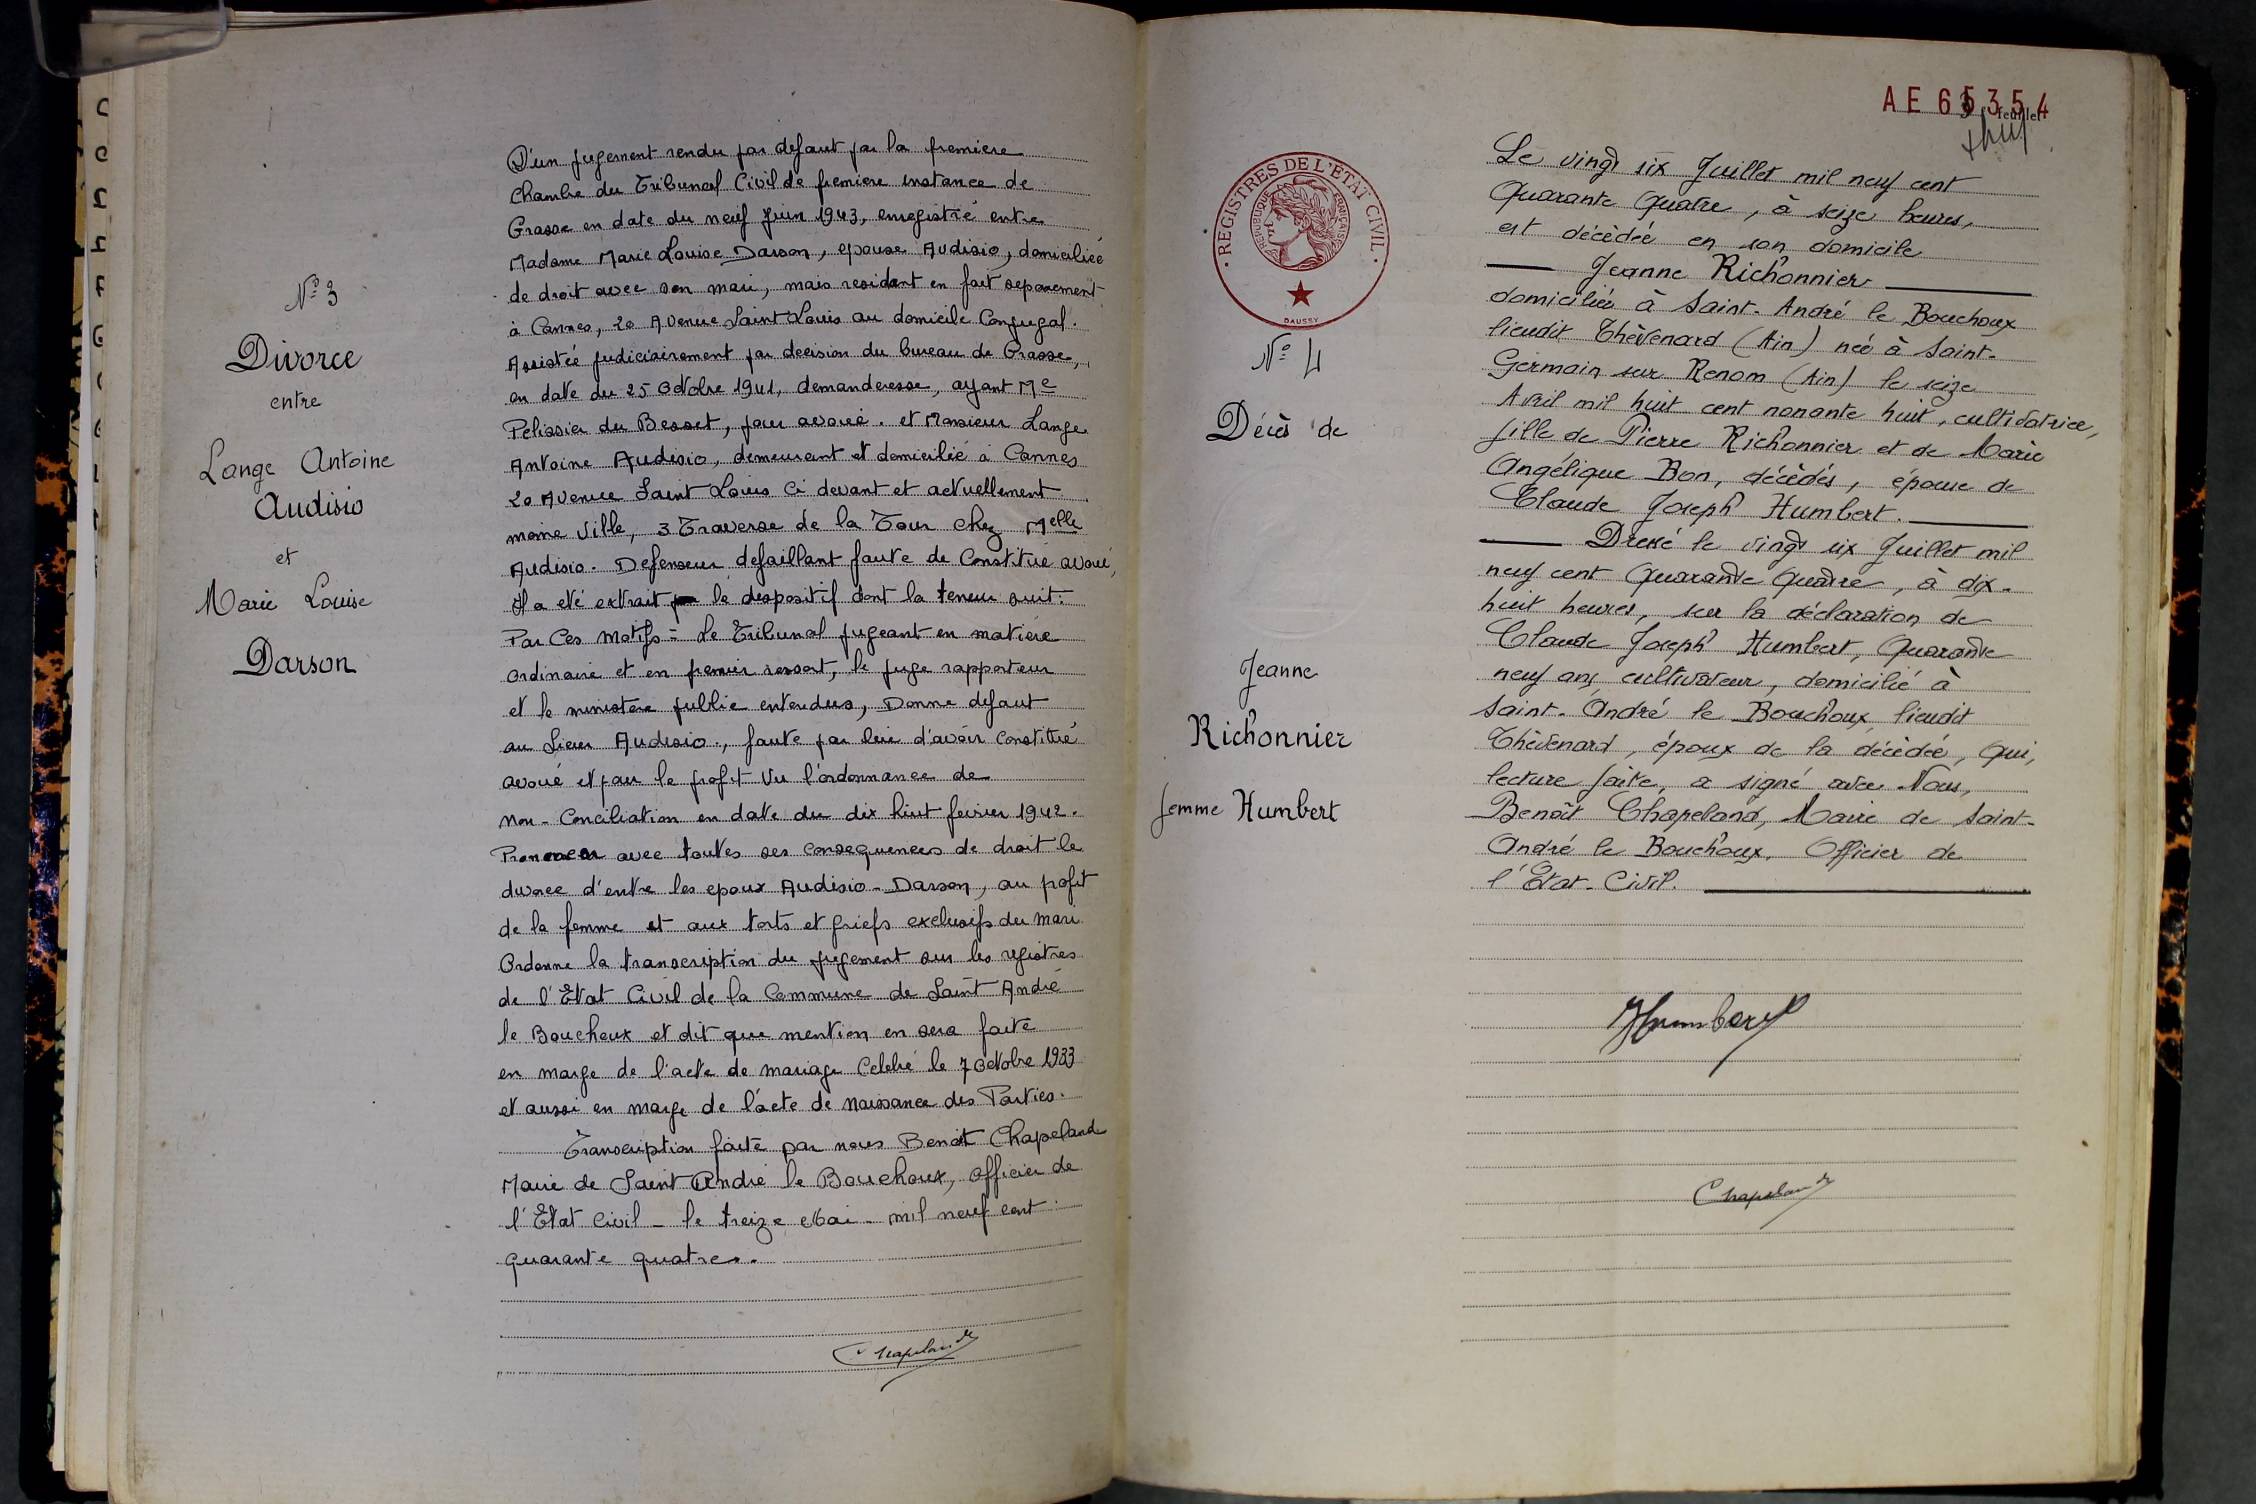 Nº 3
Divorce
entre
Lange Antoine
Audisio
et
Marie Louise
Darson
D'un jugement rendu par defaut par la premiere
Chambre du Tribunal Civil de premiere instance de
Grasse en date du neuf Juin 1943, enregistré entre
Madame Marie Louise Darson, epouse Audisio, domiciliée
de droit avec son mari, mais residant en fait separement
à Cannes, 20 Avenue Saint Louis au domicile Conjugal.
Assistée judiciairement par decision du bureau de Grasse,
en date du 25 Octobre 1941, demanderesse, ayant Me
Pelissier du Besset, pour avoué. et Monsieur Lange
Antoine Audisio, demeurant et domicilié à Cannes
20 Avenue Saint Louis Ci devant et actuellement
meme Ville, 3 Traverse de la Tour chez Melle
Audisio. Defenseur defaillant faute de Constitué avoué,
il a été extrait le dispositif dont la teneur suit.
Par Ces Motifs = Le Tribunal jugeant en matière
ordinaire et en premier ressort, le juge rapporteur
et le ministere public entendus, Donne defaut
au Sieur Audisio., faute par lui d'avoir Constitué
avoué et pour le profit Vu l'ordonnance de
non-Conciliation en date du dix huit fevrier 1942.
Prononce avec toutes ses consequences de droit le
divorce d'entre les epoux Audisio-Darson, au profit
de la femme et aux torts et griefs exclusifs du mari
Ordonne la transcription du jugement sur les registres
de l'Etat Civil de la Commune de Saint André
le Bouchoux et dit que mention en sera faite
en marge de l'acte de mariage Celebré le 7 Octobre 1933
et aussi en marge de l'acte de naissance des Parties.
Transcription faite par nous Benoit Chapeland
Maire de Saint André le Bouchoux, officier de
l'Etat Civil - le treize Mai - mil neuf cent
quarante quatre..
Chapeland
AE 65354
feuillet
REGISTRES DE L'ETAT CIVIL
REPUBLIQUE FRANÇAISE
DAUSSY
Nº 4
Décès de
Jeanne
Richonnier
femme Humbert
Le vingt six Juillet mil neuf cent
Quarante Quatre, à seize heures,
est décédée en son domicile
Jeanne Richonnier
domiciliée à Saint-André le Bouchoux
lieudit Thévenard (Ain) née à Saint-
Germain sur Renom (Ain) le seize
Avril mil huit cent nonante huit, cultivatrice,
fille de Pierre Richonnier et de Marie
Angélique Bon, décédés, épouse de
Claude Joseph Humbert.
Dressé le vingt six Juillet mil
neuf cent Quarante Quatre, à dix-
huit heures, sur la déclaration de
Claude Joseph Humbert, Quarante
neuf ans, cultivateur, domicilié à
Saint-André le Bouchoux, lieudit
Thévenard, époux de la décédée, Qui,
lecture faite, a signé avec Nous,
Benoît Chapeland, Maire de Saint-
André le Bouchoux, Officier de
l'Etat-Civil.
Humbert
Chapeland